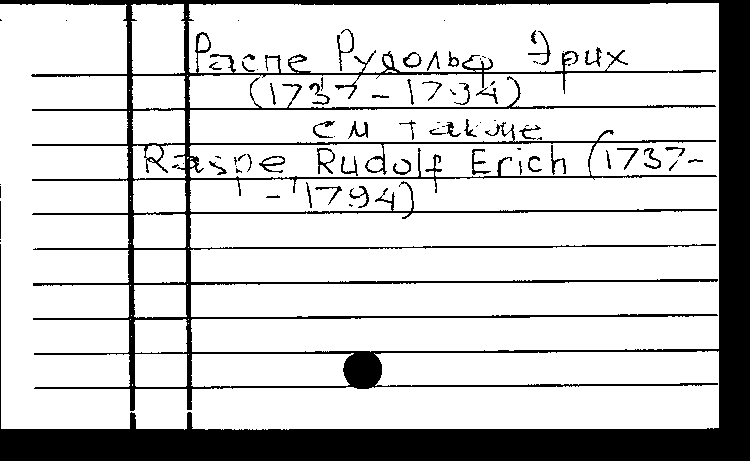 Распе Рудольф Эрих
(1737-1794)
см также
Raspe, Rudolf Erich (1737-
-1794)